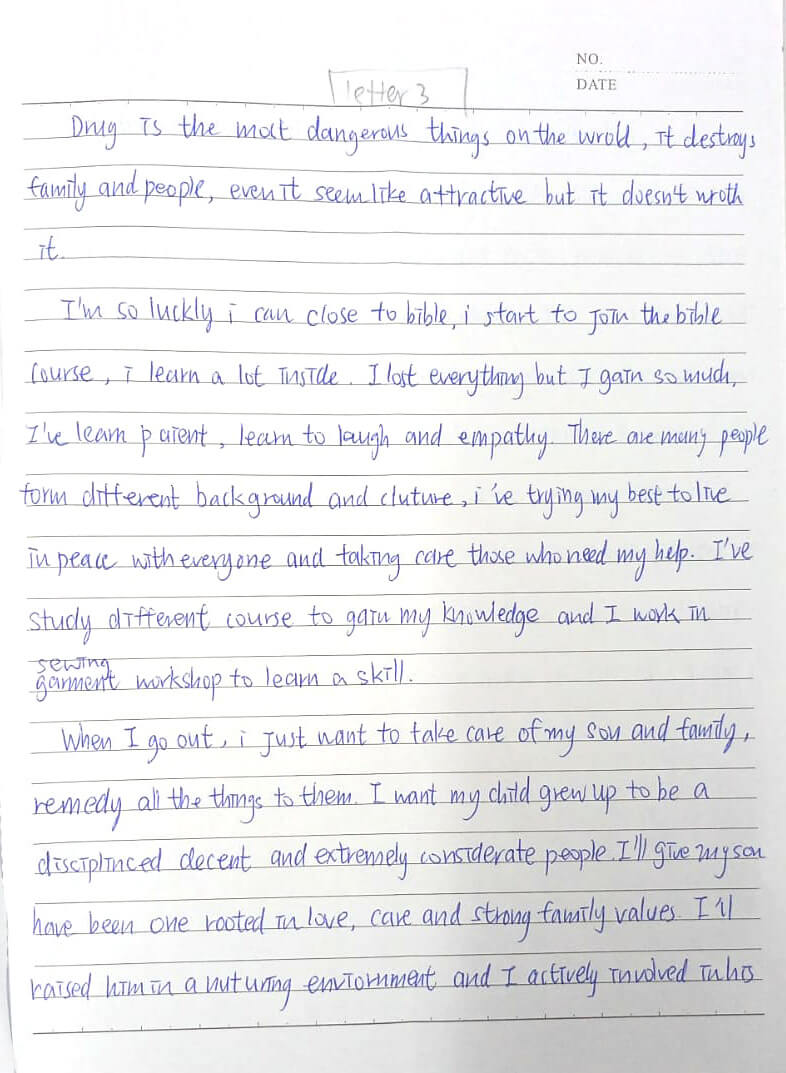 NO.
DATE
letter 3
Drug is the most dangerous things on the wrold, it destroys
family and people, even it seem like attractive but it doesn't wroth
it.
I'm so luckly i can close to bible, i start to join the bible
course, i learn a lot inside. I lost everything but I gain so much,
I've learn patent, learn to laugh and empathy. There are many people
form different background and cluture, i've trying my best to live
in peace with everyone and taking care those who need my help. I've
study different course to gain my knowledge and I work in
sewing
garment workshop to learn a skill.
When I go out, i just want to take care of my son and family,
remedy all the things to them. I want my child grew up to be a
disciplinced decent and extremely considerate people. I'll give my son
have been one rooted in love, care and strong family values. I'll
raised him in a nuturing enviornment and I actively involved in his